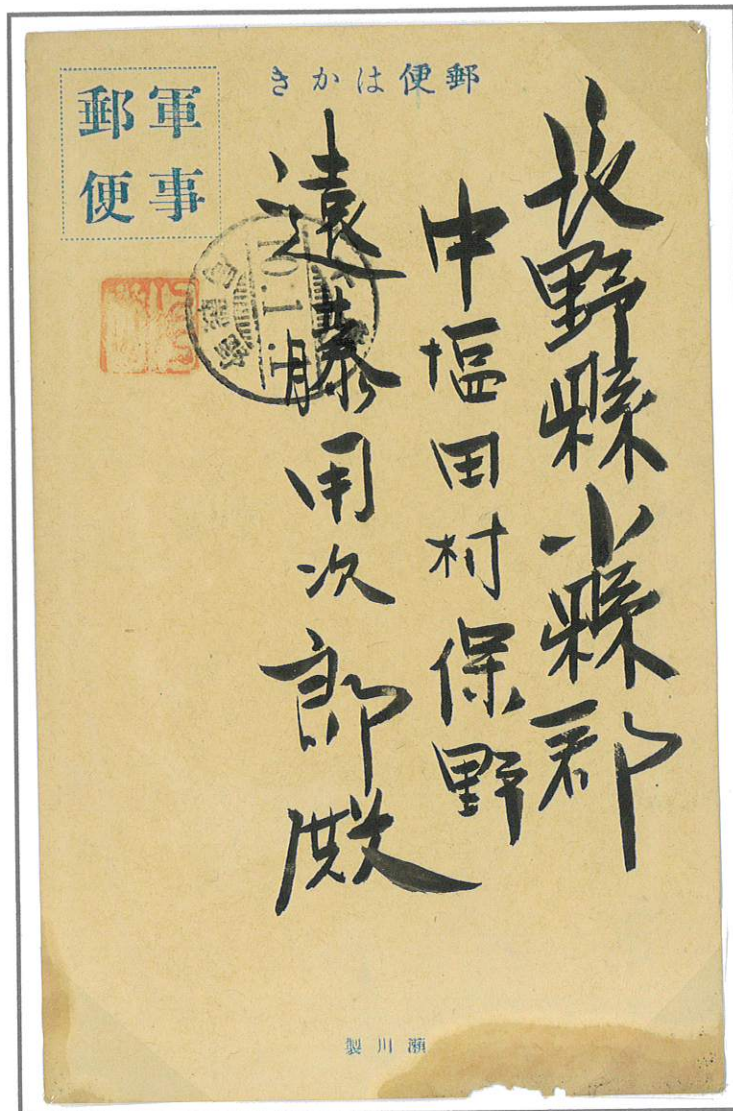 郵便はかき
軍事
郵便
長野縣小縣郡
中塩田村保野
遠藤用次郎殿
10.1.1
瀬川製